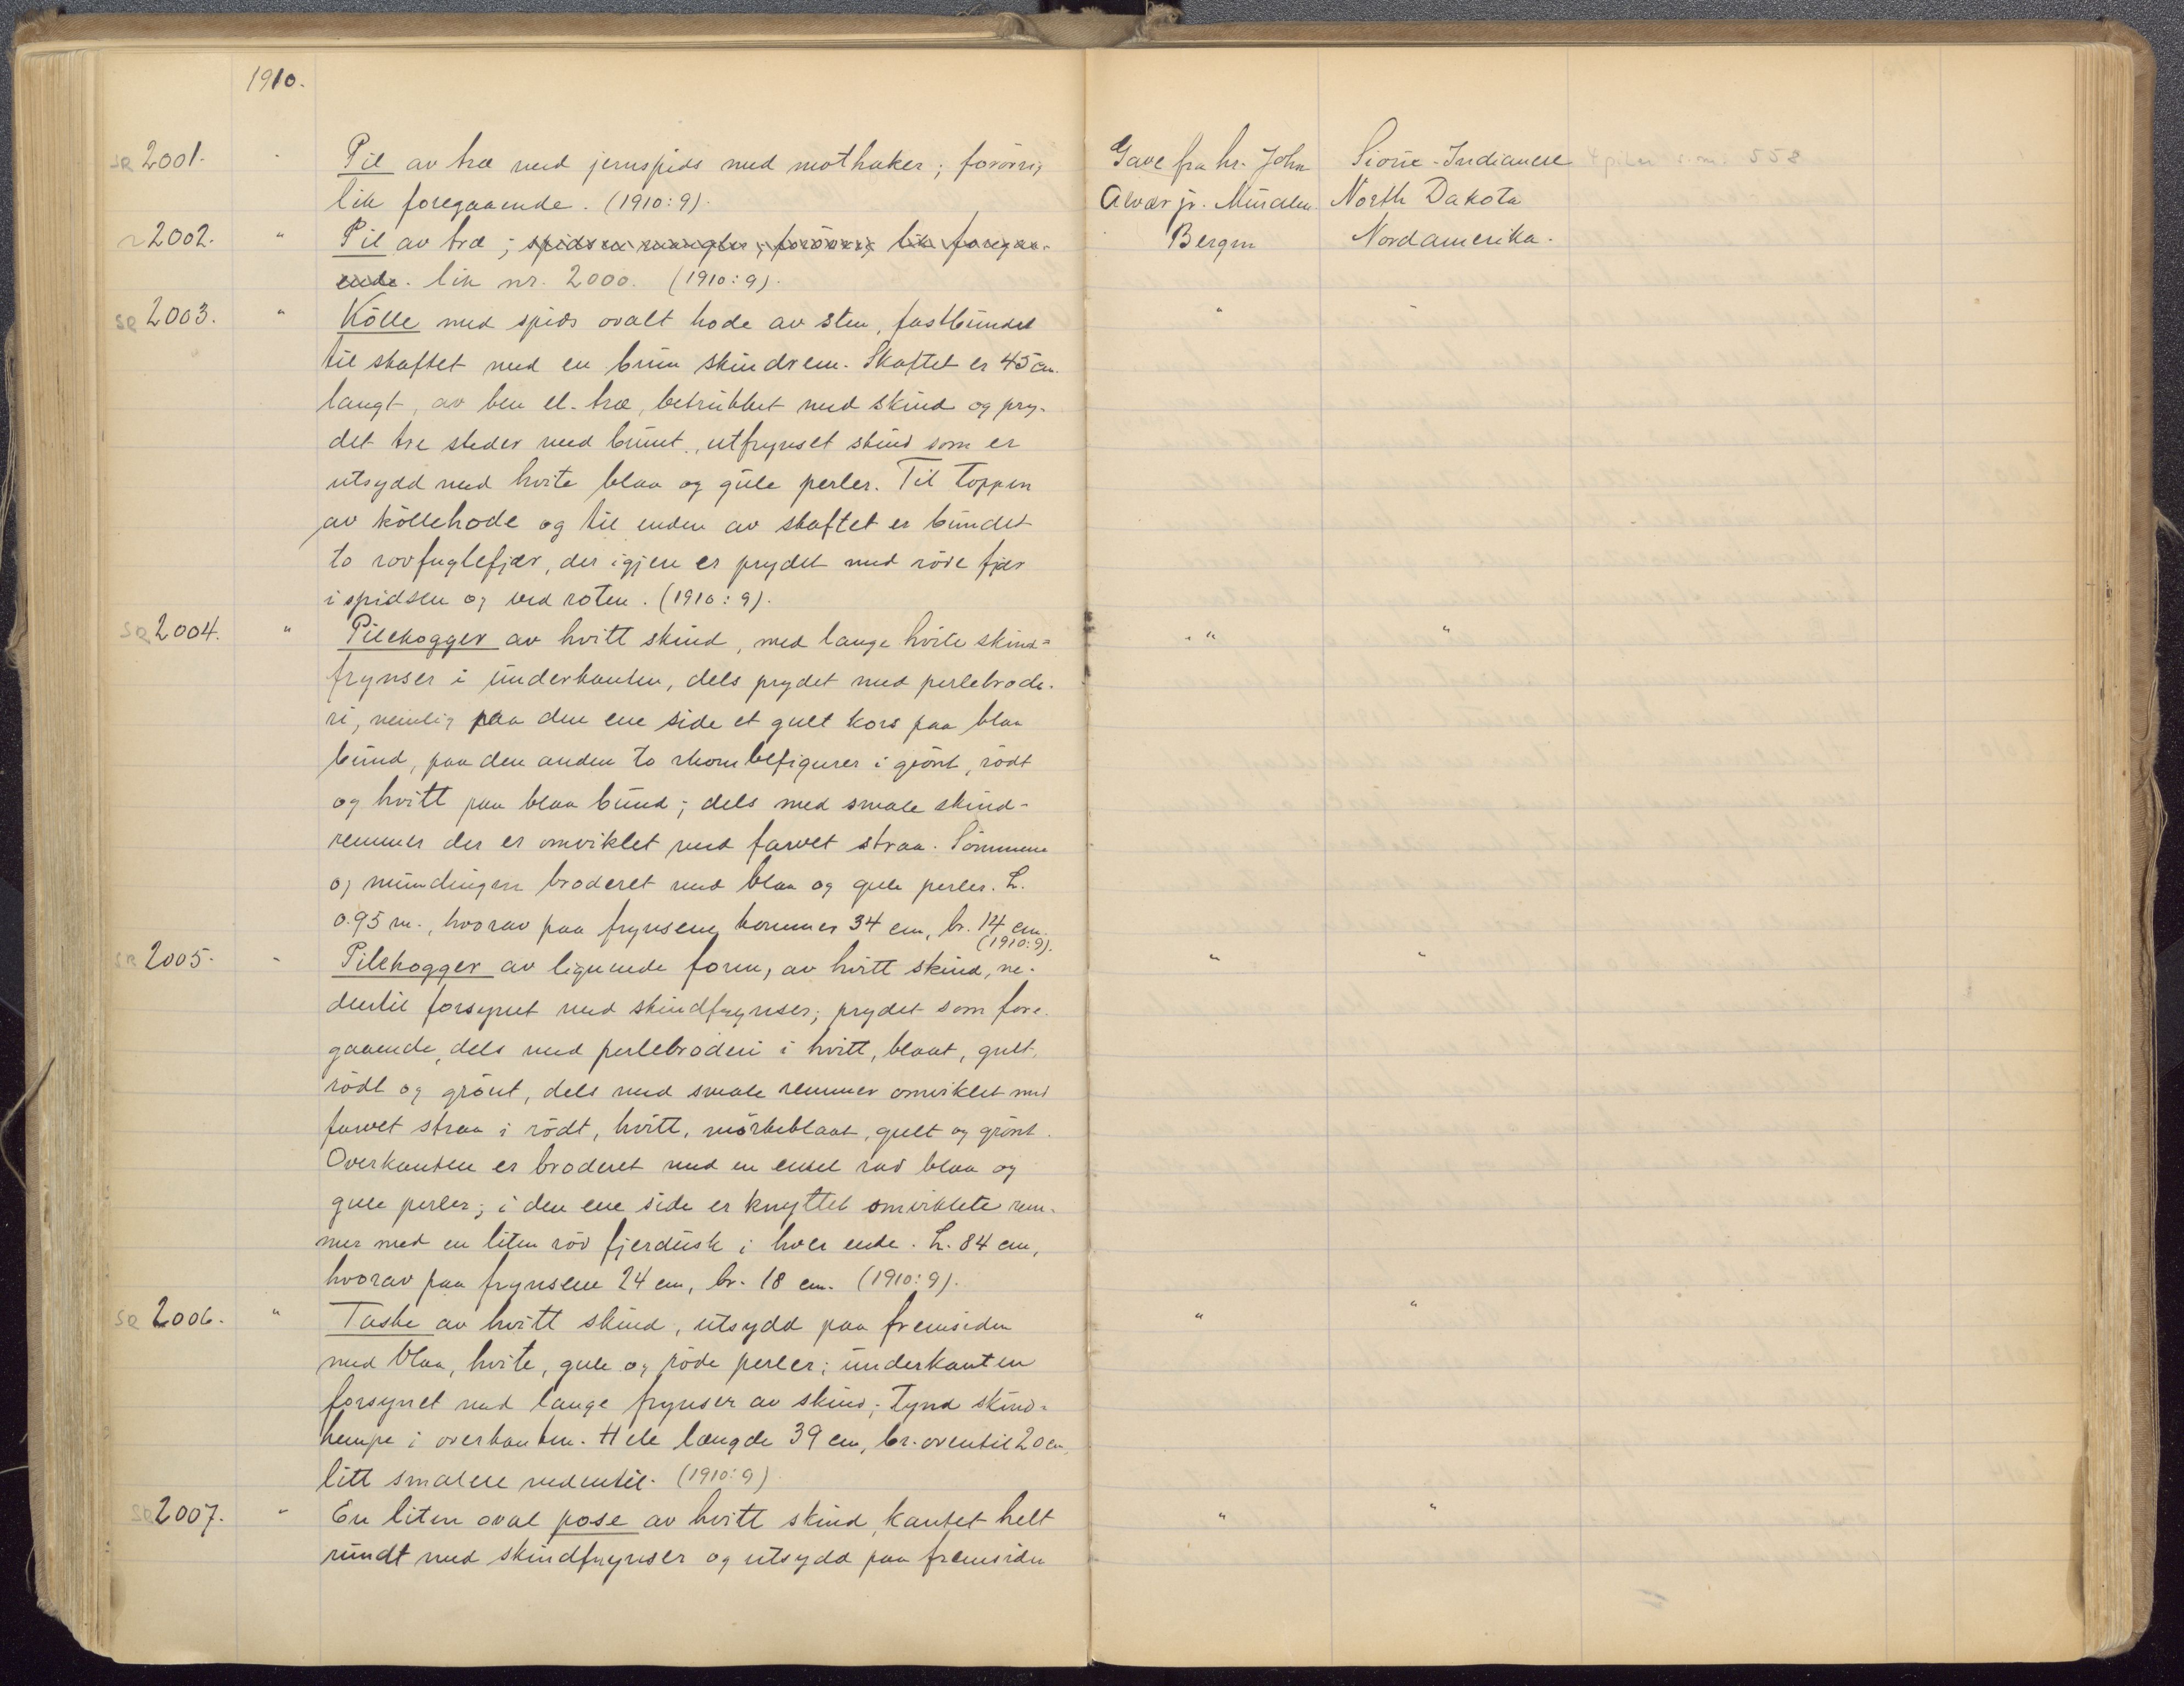 1910.
SR 2001. " Pil av træ med jernspids med mothaker; forövrig Gave fra hr. John Sioux-Indianere 4 piler s.m. 558
lik foregaaende. (1910:9). Alvær jr. North Dakota
2002. " Pil av træ; spidsen mangler; forövrig lik foregaa- Bergen Nordamerika.
ende. lik nr. 2000. (1910:9).
SR 2003. " Kölle med spids ovalt hode av sten, fastbundet " "
til skaftet med en brun skindrem. Skaftet er 45 cm.
langt, av ben el. træ, betrukket med skind og pry-
det tre steder med brunt, utfrynset skind som er
utsydd med hvite blaa og gule perler. Til toppen
av köllehode og til enden av skaftet er bundet
to rovfuglefjær, der igjen er prydet med röde fjær
i spidsen og ved roten. (1910:9).
SR 2004. " Pilekogger av hvitt skind, med lange hvite skind- " "
frynser i underkanten, dels prydet med perlebrode-
ri, nemlig paa den ene side et gult kors paa blaa
bund, paa den anden to rhombefigurer i grönt, rödt
og hvitt paa blaa bund; dels med smale skind-
remmer der er omviklet med farvet straa. Sömmene
og mundingen broderet med blaa og gule perler. L.
0.95 m., hvorav paa frynsene kommer 34 cm, br. 14 cm.
(1910:9).
SR 2005. " Pilekogger av lignende form, av hvitt skind, ne- " "
dentil forsynet med skindfrynser; prydet som fore-
gaaende, dels med perlebroderi i hvitt, blaat, gult,
rödt og grönt, dels med smale remmer omviklet med
farvet straa i rödt, hvitt, mörkeblaat, gult og grönt.
Overkanten er broderet med en enkel rad blaa og
gule perler; i den ene side er knyttet omviklete rem-
mer med en liten röd fjerdusk i hver ende. L. 84 cm,
hvorav paa frynsene 24 cm, br. 18 cm. (1910:9).
SR 2006. " Taske av hvitt skind, utsydd paa fremsiden " "
med blaa, hvite, gule og röde perler; underkanten
forsynet med lange frynser av skind; tynd skind-
hempe i overkanten. Hele længde 39 cm, br. oventil 20 cm,
litt smalere nedentil. (1910:9)
SR 2007. " En liten oval pose av hvitt skind, kantet helt " "
rundt med skindfrynser og utsydd paa fremsiden